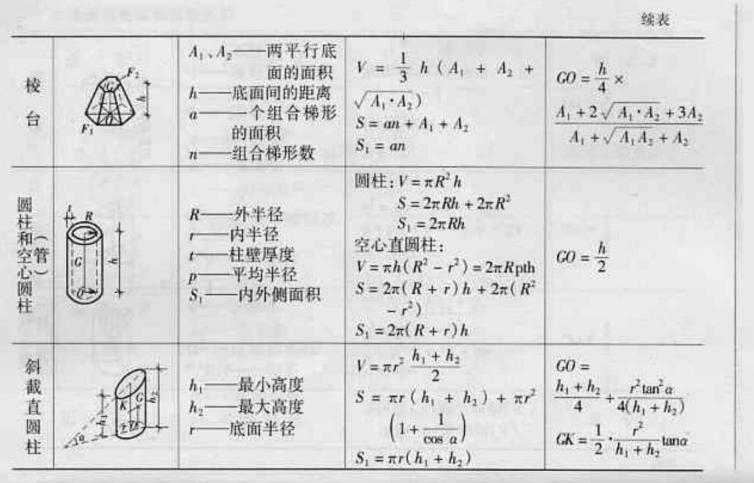 续表
棱台
F₂
G
h
O
F₁
A₁、A₂——两平行底
面的面积
h——底面间的距离
a——一个组合梯形
的面积
n——组合梯形数
V = 1/3 h ( A₁ + A₂ +
√(A₁·A₂) )
S = an + A₁ + A₂
S₁ = an
GO = h/4 ×
(A₁ + 2√(A₁·A₂) + 3A₂)/(A₁ + √(A₁A₂) + A₂)
圆柱和空心圆柱
(管)
t
R
G
h
O
R——外半径
r——内半径
t——柱壁厚度
p——平均半径
S₁——内外侧面积
圆柱:V = πR²h
S = 2πRh + 2πR²
S₁ = 2πRh
空心直圆柱:
V = πh(R² − r²) = 2πRpth
S = 2π(R + r)h + 2π(R²
− r²)
S₁ = 2π(R + r)h
GO = h/2
斜截直圆柱
K
G
h₂
α
h₁——最小高度
h₂——最大高度
r——底面半径
V = πr² (h₁ + h₂)/2
S = πr ( h₁ + h₂ ) + πr²
(1 + 1/cos α)
S₁ = πr(h₁ + h₂)
GO =
(h₁ + h₂)/4 + r²tan²α/4(h₁ + h₂)
GK = 1/2 · r²/(h₁ + h₂) tanα